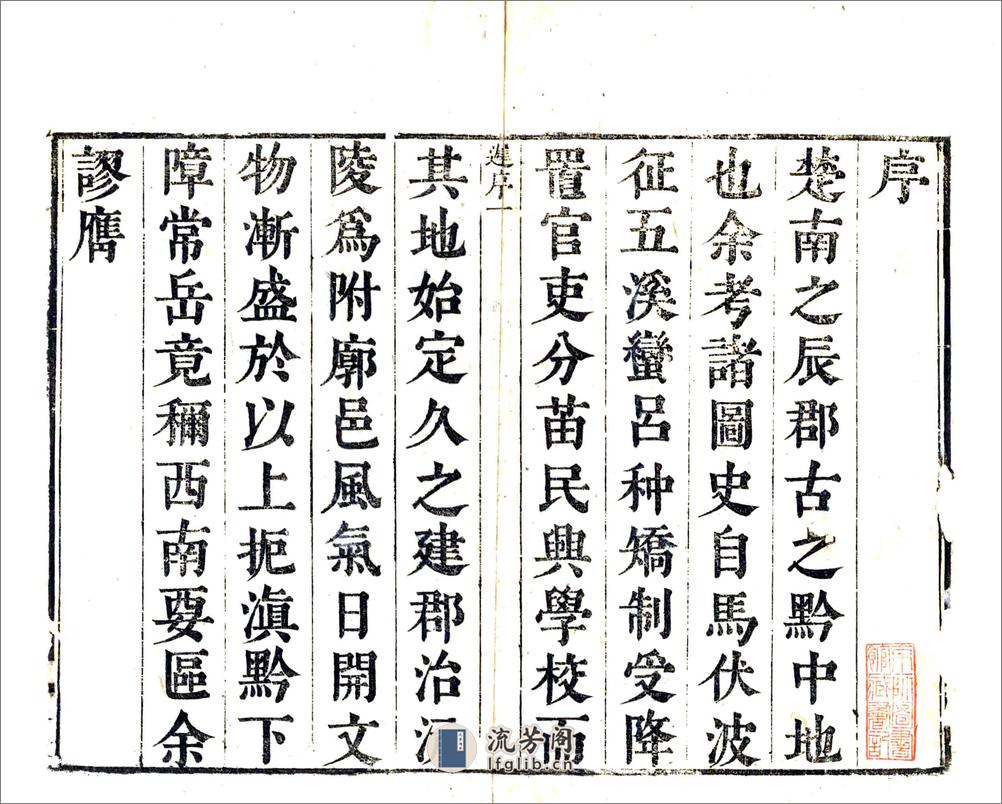 序
楚南之辰郡古之黔中地
也余考諸圖史自馬伏波
征五溪蠻呂种矯制受降
置官吏分苗民興學校而
序一
其地始定久之建郡治
陵爲附廓邑風氣日開文
物漸盛於以上扼滇黔下
障常岳竟稱西南要區余
謬膺
流芳阁
lfglib.cn